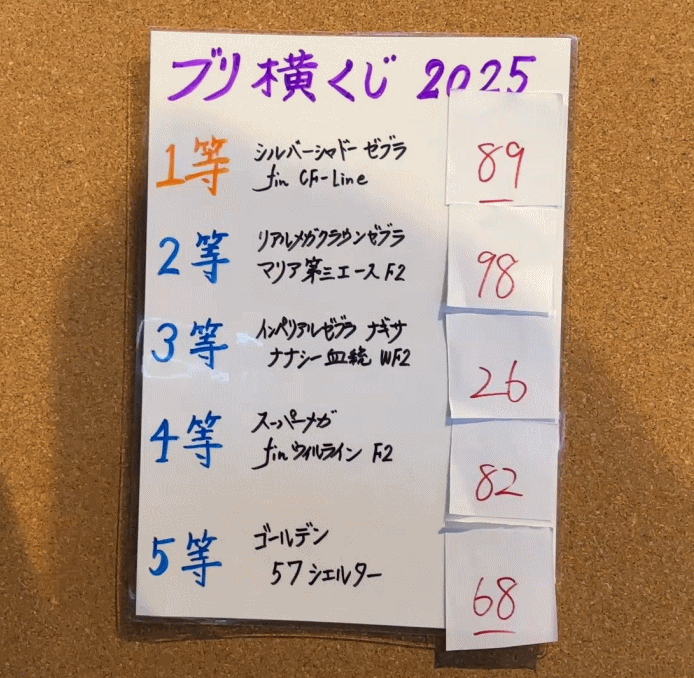 ブリ横くじ 2025
1等 シルバーシャドー ゼブラ 89
fin CFi-Line
2等 リアルメガクラウンゼブラ 98
マリア 第三エース F2
3等 インペリアルゼブラ ナギサ 26
ナナシー血統 WF2
4等 スーパーメガ 82
fin ウィルライン F2
5等 ゴールデン 68
57シェルター